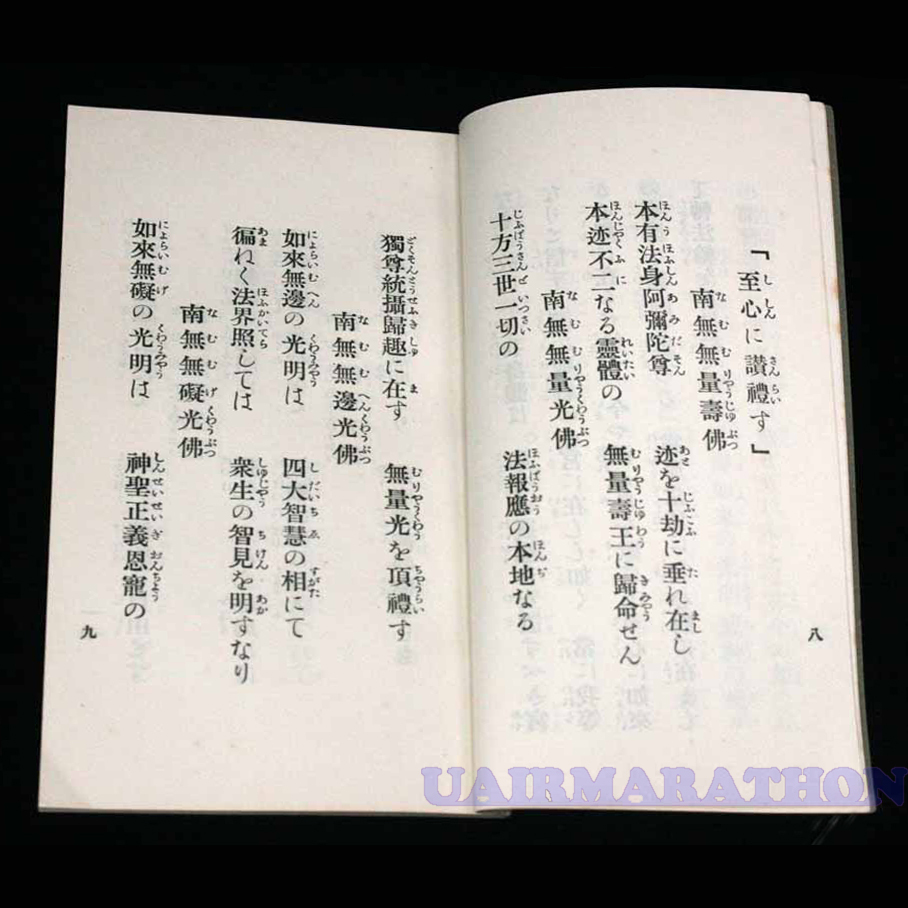 「至心に讃禮す」
南無無量壽佛
本有法身阿彌陀尊　迹を十劫に垂れ在し
本迹不二なる靈體の　無量壽王に歸命せん
南無無量光佛
十方三世一切の　法報應の本地なる
八
獨尊統攝歸趣に在す　無量光を頂禮す
南無無邊光佛
如來無邊の光明は　四大智慧の相にて
徧ねく法界照しては　衆生の智見を明すなり
南無無礙光佛
如來無礙の光明は　神聖正義恩寵の
九
UAIRMARATHON